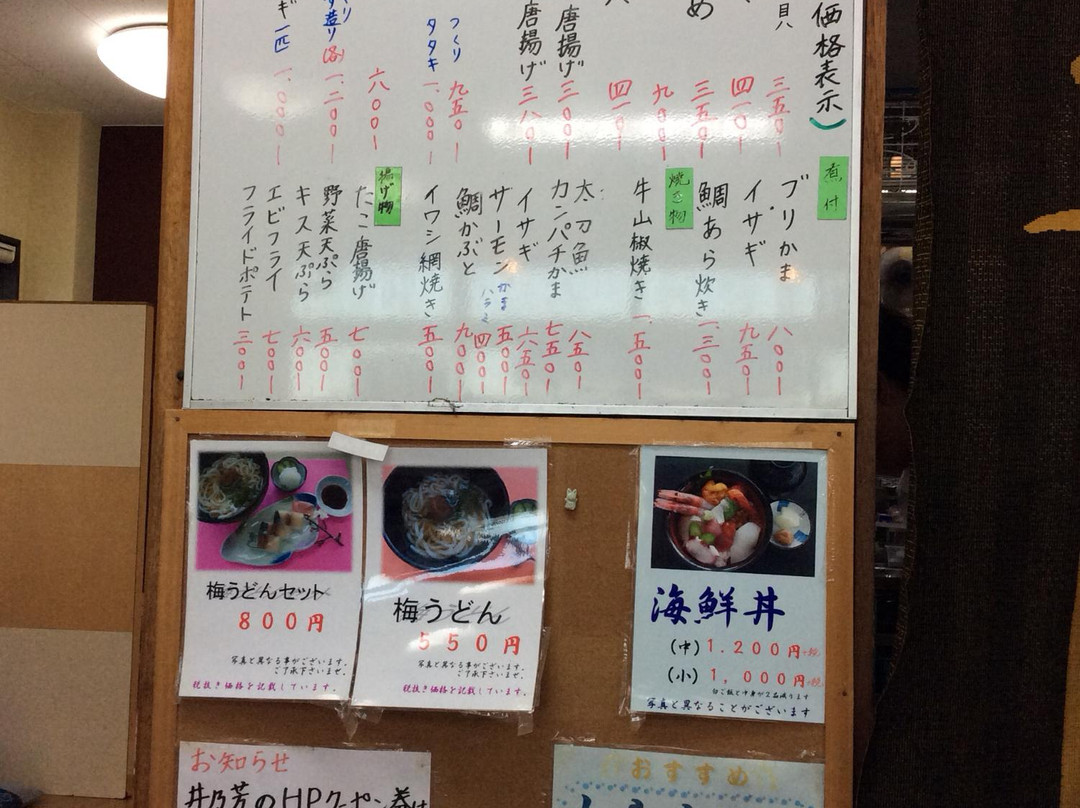 価格表示)
貝 三五〇ー
四一〇ー
め 三五〇ー
九〇〇ー
四一〇ー
唐揚げ 三〇〇ー
唐揚げ 三八〇ー
つくり 九五〇ー
タタキ 一、〇〇〇ー
六〇〇ー
一、二〇〇ー
ギ一匹 一、〇〇〇ー
煮付
ブリかま 八〇〇ー
イサギ 九五〇ー
鯛あら炊き 一、三〇〇ー
焼き物
牛山椒焼き 一、五〇〇ー
太刀魚 八五〇ー
カンパチかま 七五〇ー
イサギ 六五〇ー
サーモンかま 五〇〇ー
ハラミ 四〇〇ー
鯛かぶと 九〇〇ー
イワシ網焼き 五〇〇ー
揚げ物
たこ唐揚げ 七〇〇ー
野菜天ぷら 五〇〇ー
キス天ぷら 六〇〇ー
エビフライ 七〇〇ー
フライドポテト 三〇〇ー
梅うどんセット
800円
写真と異なる事がございます。
ご了承下さいませ。
税抜き価格を記載しています。
梅うどん
550円
写真と異なる事がございます。
ご了承下さいませ。
税抜き価格を記載しています。
海鮮丼
(中)1.200円+税
(小)1,000円+税
写真と異なることがございます
お知らせ
井乃芳のHPクーポン券は
おすすめ